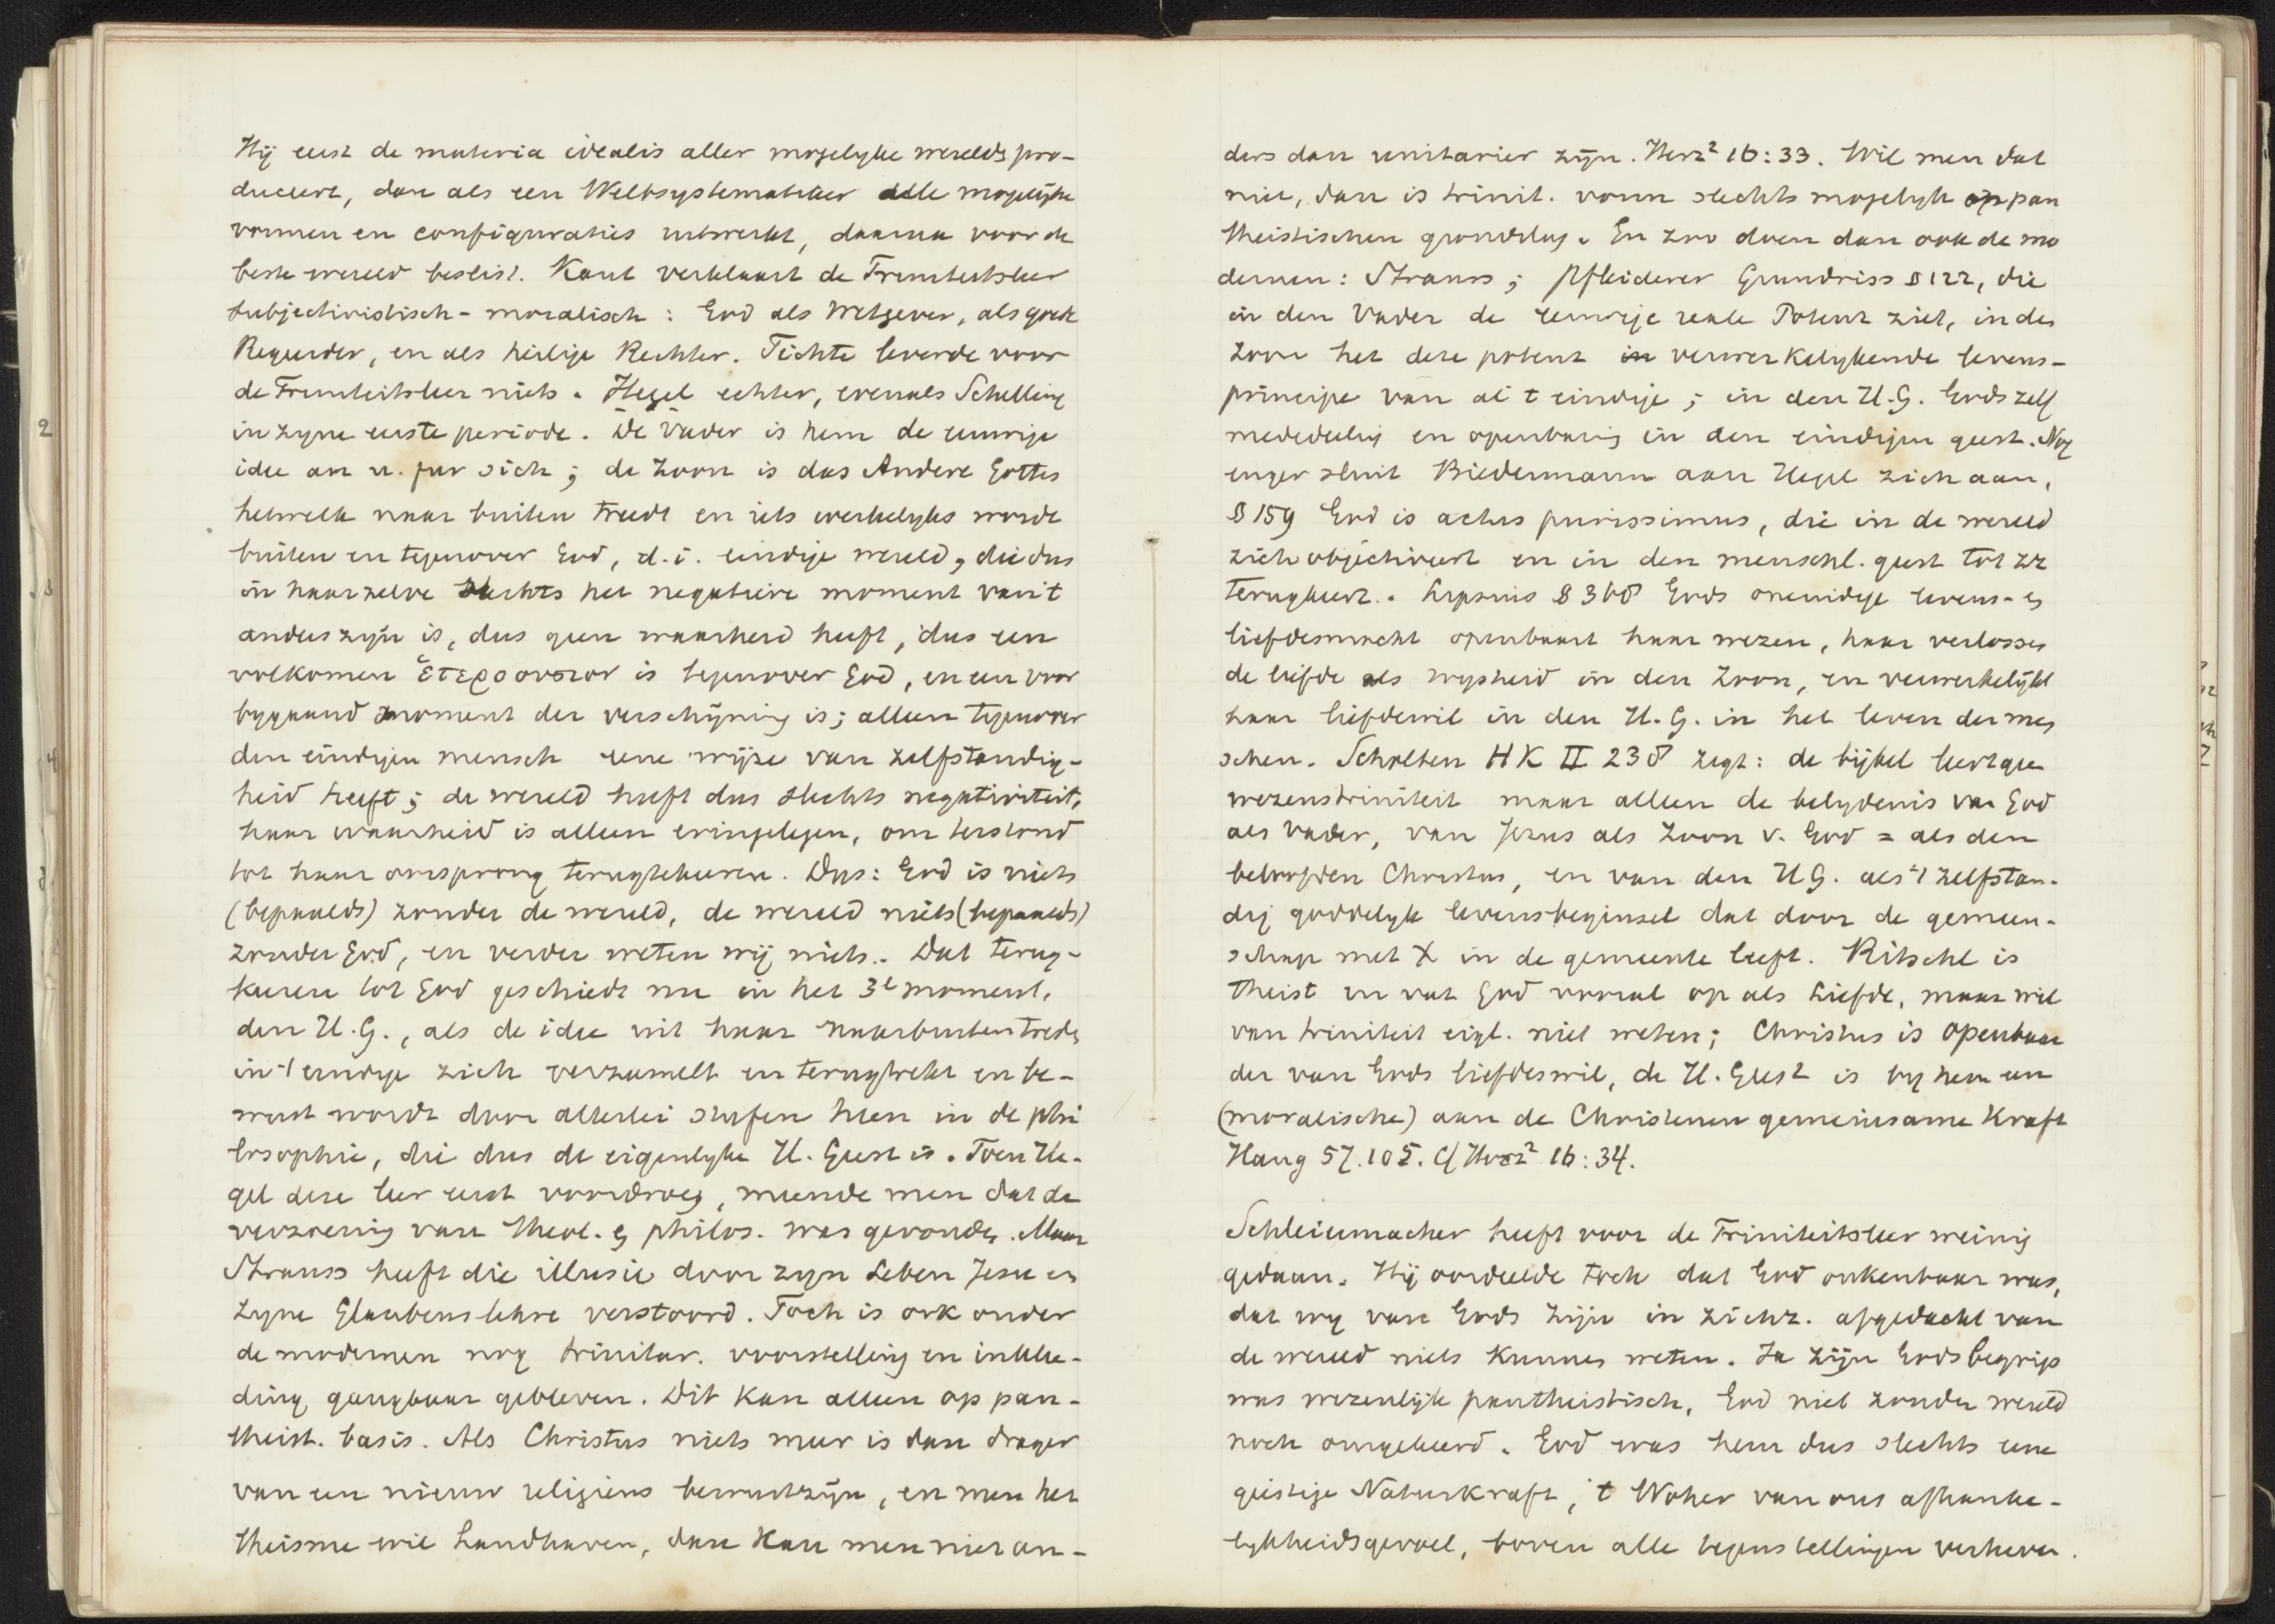 Hij eerst de materia idealis aller mogelyke werelds pro-
duceert, dan als een Weltsystematiker alle mogelijke
vormen en configuraties uitwerkt, daarna voor de
beste wereld beslist. Kant verklaart de Triniteitsleer
subjectivistisch-moralisch: God als Wetgever, als goede
Regeerder, en als heilige Rechter. Fichte leverde voor
de Triniteitsleer niets. Hegel echter, evenals Schelling
in zyne eerste periode. De Vader is hem de eeuwige
idee an u. für sich; de Zoon is das Andere Gottes
hetwelk naar buiten treedt en iets werkelyks wordt
buiten en tegenover God, d.i. eindige wereld, die dus
in haarzelve slechts het negatieve moment van 't
anderszijn is, dus geen waarheid heeft, dus een
volkomen ἑτεροουσιον is tegenover God, en een voor
bygaand moment der verschijning is; alleen tegenover
den eindigen mensch eene wijze van zelfstandig-
heid heeft; de wereld heeft dus slechts negativiteit,
haar waarheid is alleen eringelegen, om terstond
tot haar oorsprong terugtekeeren. Dus: God is niets
(bepaalds) zonder de wereld, de wereld niets (bepaalds)
zonder God, en verder weten wij niets. Dat terug-
keeren tot God geschiedt nu in het 3e moment,
den H.G., als de idee uit haar naarbuitentreden
in 't eindige zich verzamelt en terugtrekt en be-
wust wordt door allerlei stufen heen in de phi
losophie, die dus de eigenlyke H. Geest is. Toen He-
gel deze leer eerst voordroeg, meende men dat de
verzoening van theol. en philos. was gevonden. Maar
Strauss heeft die illusie door zyn Leben Jesu en
zyne Glaubenslehre verstoord. Toch is ook onder
de modernen nog trinitar. voorstelling en inklee-
ding gangbaar gebleven. Dit kan alleen op pan-
theist. basis. Als Christus niets meer is dan drager
van een nieuw religieus bewustzijn, en men het
theisme wil handhaven, dan kan men niet an-
ders dan unitarier zijn. Herz² 16:33. Wil men dat
niet, dan is trinit. vorm slechts mogelyk op pan
theistischen grondslag. En zoo doen dan ook de mo
dernen: Strauss; Pfleiderer Grundriss § 122, die
in den Vader de eeuwige reale Potenz ziet, in den
Zoon het deze potenz verwerkelykende levens-
principe van al 't eindige; in den H.G. Gods zelf
mededeeling en openbaring in den eindigen geest. Nog
enger sluit Biedermann aan Hegel zich aan,
§ 159 God is actus purissimus, die in de wereld
zich objectiveert en in den menschl. geest tot zz
terugkeert. Lipsius § 368 Gods oneindige levens- en
liefdesmacht openbaart haar wezen, haar verlossen
de liefde als wysheid in den Zoon, en verwerkelijkt
haar liefdewil in den H.G. in het leven der men
schen. Scholten HK II 238 zegt: de bijbel leert geen
wezenstriniteit maar alleen de belydenis van God
als Vader, van Jezus als Zoon v. God = als den
beloofden Christus, en van den H G. als 't zelfstan-
dig goddelyk levensbeginsel dat door de gemeen-
schap met X in de gemeente leeft. Ritschl is
theist en vat God vooral op als Liefde, maar wil
van triniteit eigl. niet weten; Christus is openbaar
der van Gods liefdeswil, de H. Geest is by hem een
(moralische) aan de Christenen gemeinsame Kraft
Haug 57.105. Cf Herz² 16:34.
Schleiermacher heeft voor de Triniteitsleer weinig
gedaan. Hij oordeelde toch dat God onkenbaar was,
dat wy van Gods zijn in zichz. afgedacht van
de wereld niets kunnen weten. Ja zijn Gods begrip
was wezenlijk pantheistisch, God niet zonder wereld
noch omgekeerd. God was hem dus slechts eene
geistige Naturkraft, 't Woher van ons afhanke-
lykheidsgevoel, boven alle tegenstellingen verheven.